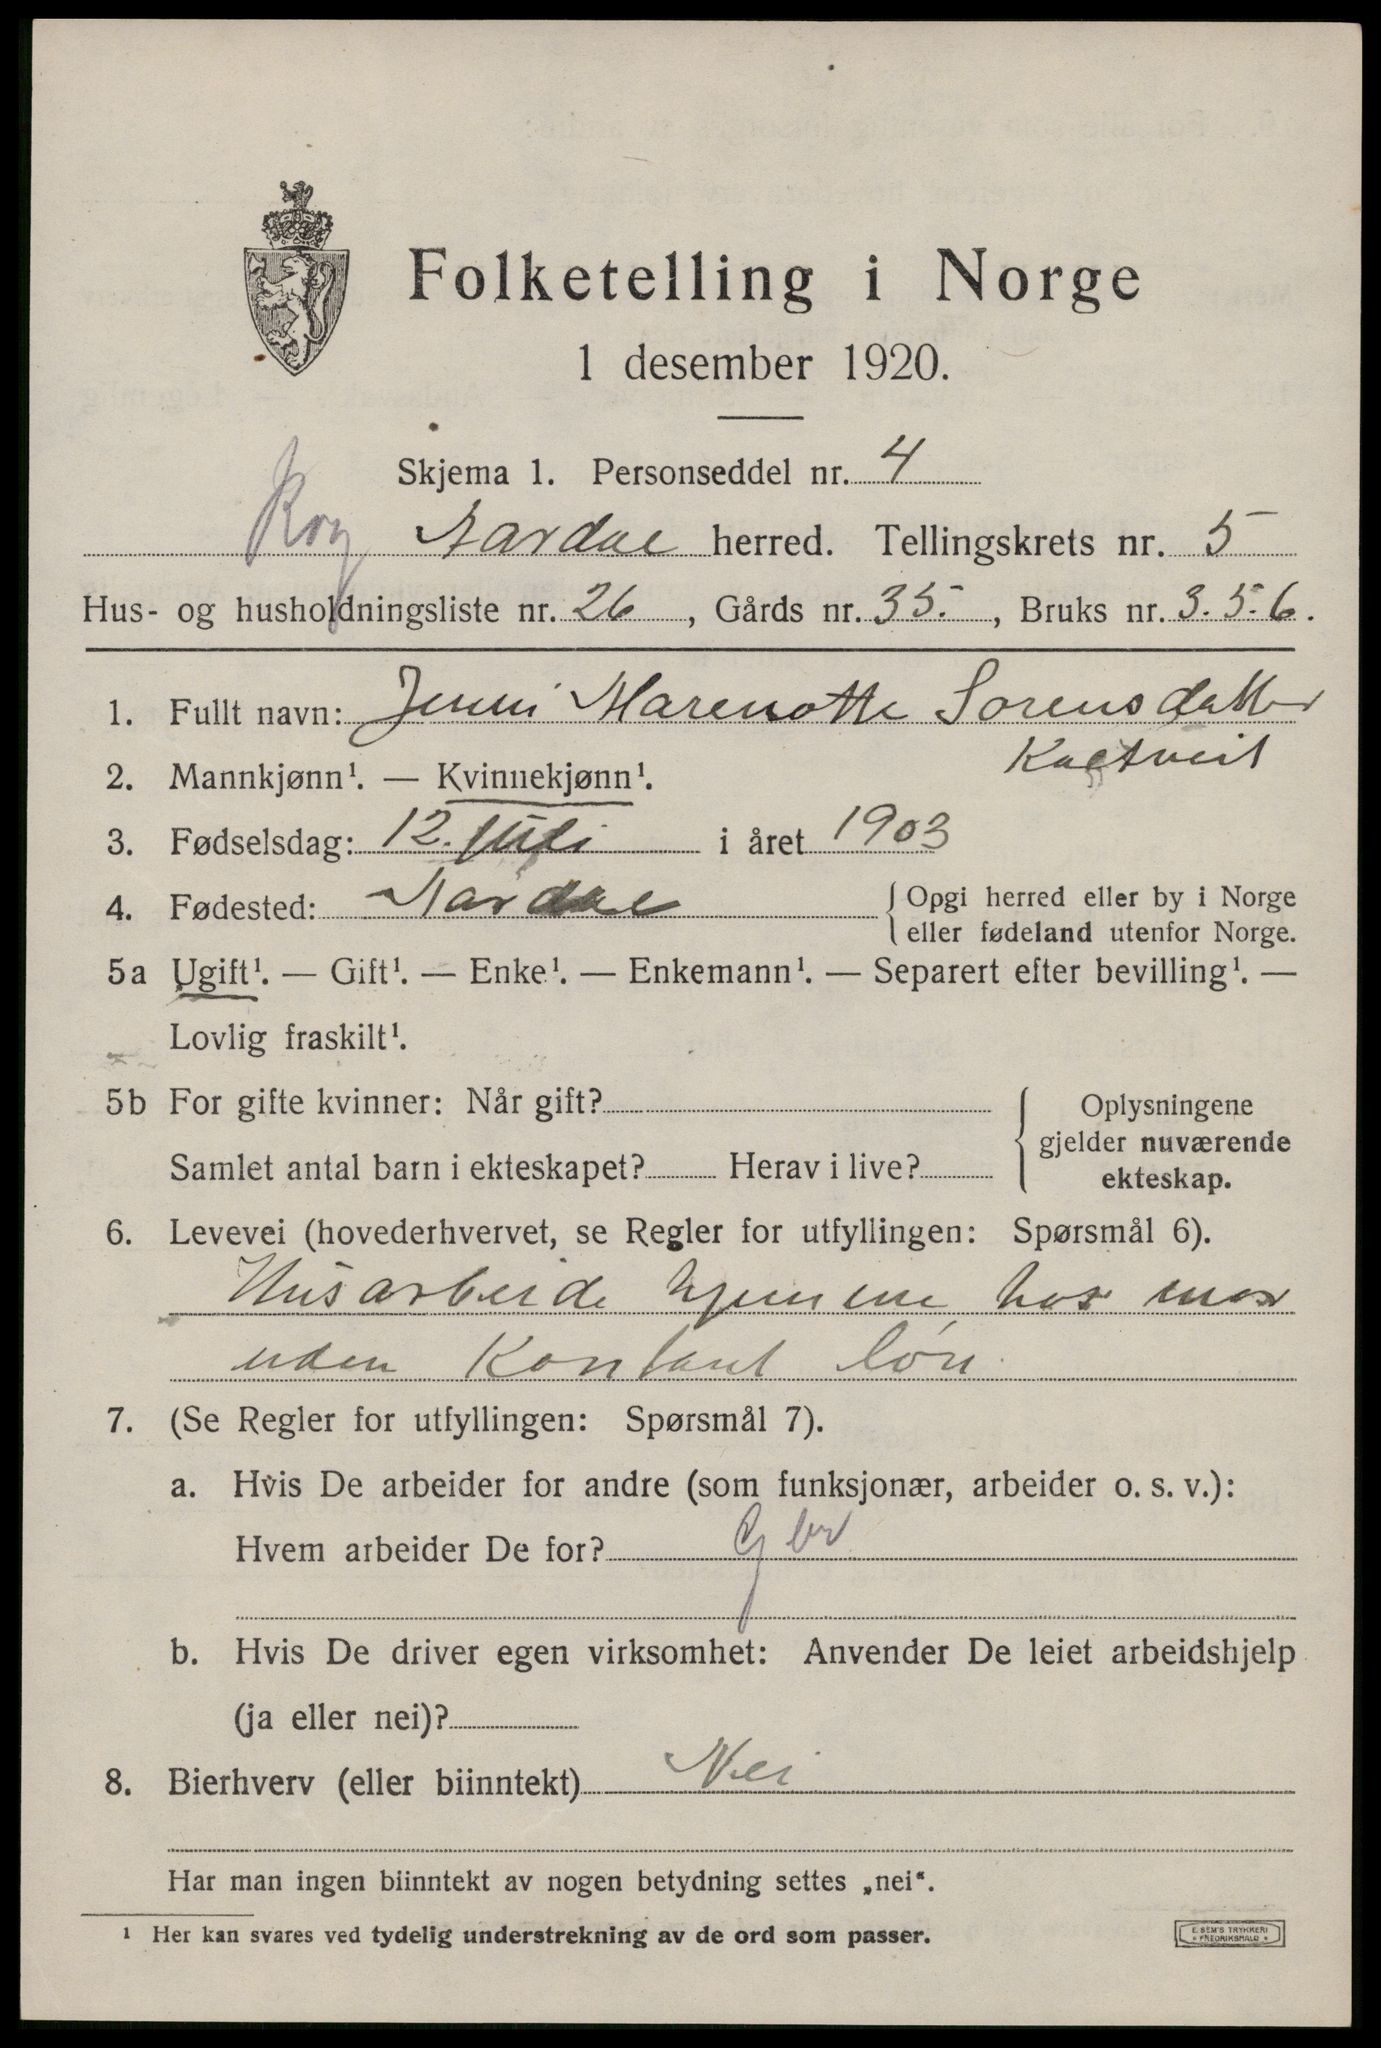 Folketelling i Norge
1 desember 1920.
Skjema 1. Personseddel nr. 4
Rog Aardal herred. Tellingskrets nr. 5
Hus- og husholdningsliste nr. 26, Gårds nr. 35., Bruks nr. 3. 5. 6.
1. Fullt navn: Jenni Marenotte Sorensdatter
Kaltveit
2. Mannkjønn¹. — Kvinnekjønn¹.
3. Fødselsdag: 12. Juli i året 1903
4. Fødested: Aardal { Opgi herred eller by i Norge
eller fødeland utenfor Norge.
5a Ugift¹. — Gift¹. — Enke¹. — Enkemann¹. — Separert efter bevilling¹. —
Lovlig fraskilt¹.
5b For gifte kvinner: Når gift?
Samlet antal barn i ekteskapet? Herav i live?
{ Oplysningene
gjelder nuværende
ekteskap.
6. Levevei (hovederhvervet, se Regler for utfyllingen: Spørsmål 6).
Husarbeide hjemme hos mor
uden Kontant løn
7. (Se Regler for utfyllingen: Spørsmål 7).
a. Hvis De arbeider for andre (som funksjonær, arbeider o. s. v.):
Hvem arbeider De for? Gbr
b. Hvis De driver egen virksomhet: Anvender De leiet arbeidshjelp
(ja eller nei)?
8. Bierhverv (eller biinntekt) Nei
Har man ingen biinntekt av nogen betydning settes „nei“.
¹ Her kan svares ved tydelig understrekning av de ord som passer.
E. SEM'S TRYKKERI
* FREDRIKSHALD *